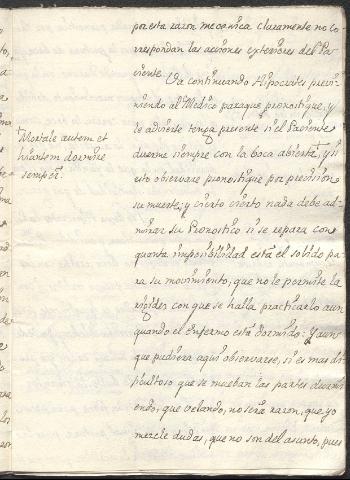 por esta razon mecanica claramente no co-
rrespondan las acciones exteriores del Pa-
ciente.
Va continuando Hipocrates previ-
niendo al Medico paraque pronostique, y
le advierte tenga presente si el Paciente
duerme siempre con la boca abierta, y si
esto observare pronostique por precision
su muerte, y cierto cierto nada debe ad-
mirar su Pronostico si se repara con
quanta imposibilidad está el solido pa-
ra su movimiento, que no le permite la
rigides con que se halla practicarlo aun
quando el enfermo está dormido: Y aun
que pudiera aqui observarse, si es mas di-
ficultoso que se mueban las partes durmi-
endo, que velando, no será razon, que yo
mezcle dudas, que no son del asunto, pues
Mortale autem et
hiantem dormire
semper